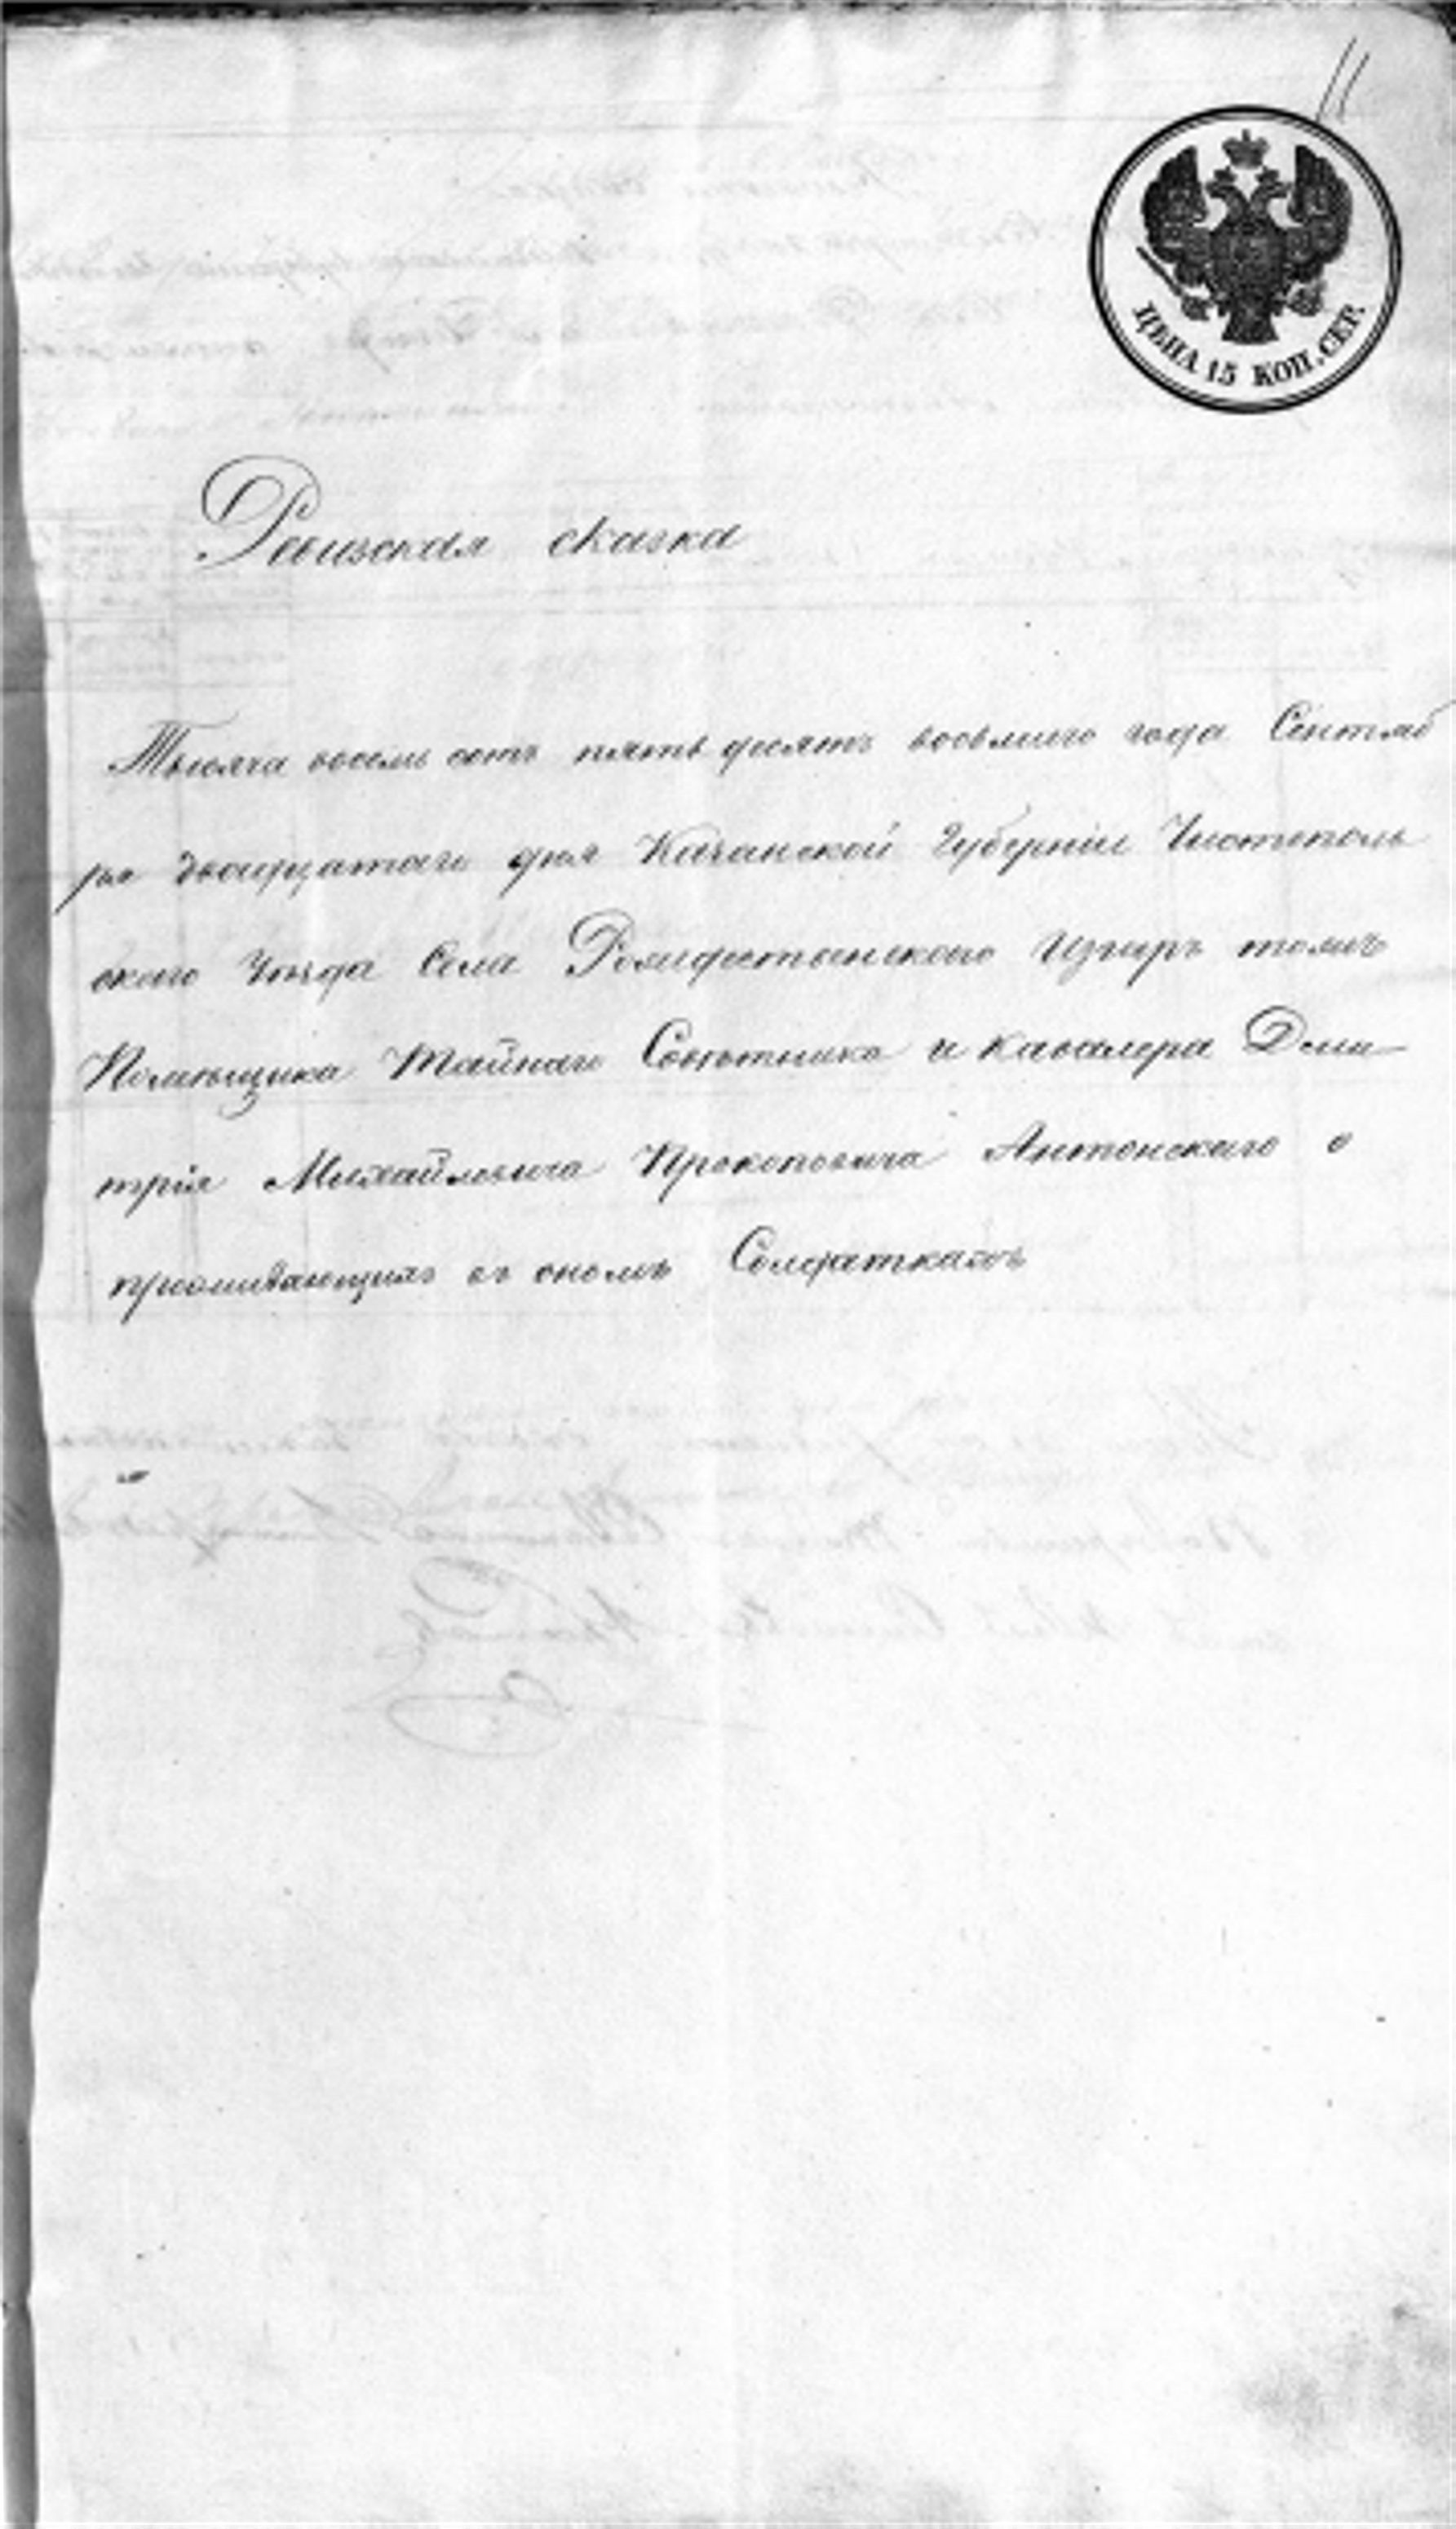 11
ЦѢНА 15 КОП. СЕР.
Ревизская сказка
Тысяча восемь сотъ пять десятъ восьмого года Сентяб
ря двадцатаго дня Казанской Губерніи Чистополь
скаго Уѣзда Села Рождественскаго Изгаръ тожъ
Помѣщика Тайнаго Совѣтника и Кавалера Дми
трія Михайловича Прокоповича Антонскаго о
проживающихъ въ ономъ Солдаткахъ